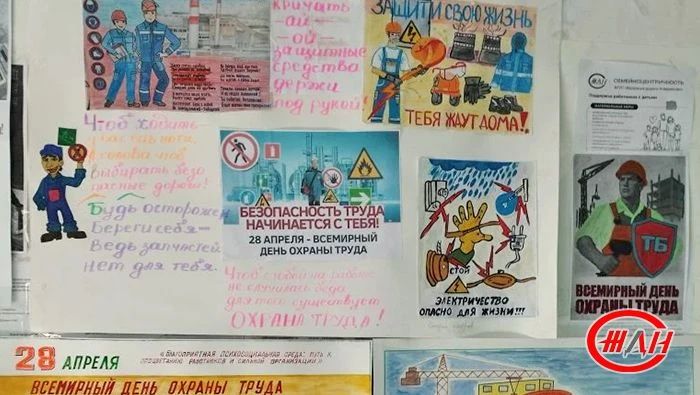 кричать
-ай-
-ой-
защитные
средства
держи
под рукой!
ЗАЩИТИ СВОЮ ЖИЗНЬ
ТЕБЯ ЖДУТ ДОМА!
Чтоб ходить
выбирать безо-
пасные дороги!
Будь осторожен
Береги себя-
Ведь запчастей
нет для тебя.
БЕЗОПАСНОСТЬ ТРУДА
НАЧИНАЕТСЯ С ТЕБЯ!
28 АПРЕЛЯ - ВСЕМИРНЫЙ
ДЕНЬ ОХРАНЫ ТРУДА
Чтоб с тобой на работе
не случилась беда
для того существует
ОХРАНА ТРУДА!
СТОЙ
ЭЛЕКТРИЧЕСТВО
ОПАСНО ДЛЯ ЖИЗНИ!!!
ЖДН
СЕМЕЙНОЦЕНТРИЧНОСТЬ
ТБ
ВСЕМИРНЫЙ ДЕНЬ
ОХРАНЫ ТРУДА
ЖДН
28 АПРЕЛЯ
«БЛАГОПРИЯТНАЯ ПСИХОСОЦИАЛЬНАЯ СРЕДА: ПУТЬ К
ПРОЦВЕТАНИЮ РАБОТНИКОВ И СИЛЬНОЙ ОРГАНИЗАЦИИ»
ВСЕМИРНЫЙ ДЕНЬ ОХРАНЫ ТРУДА